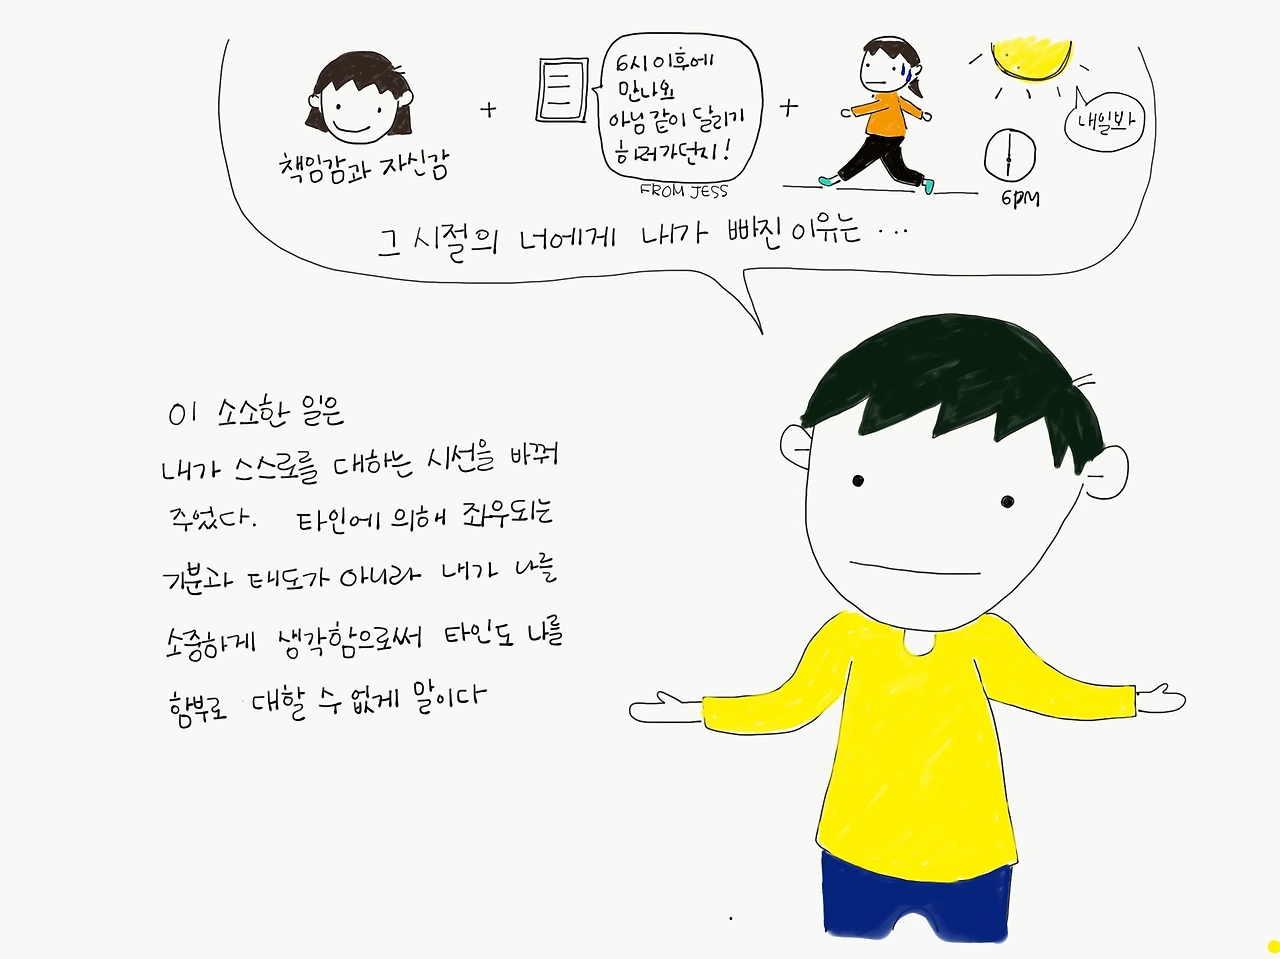 6시 이후에
만나요
아님 같이 달리기
하러가던지!
FROM JESS
내일봐
6PM
책임감과 자신감
그 시절의 너에게 내가 빠진 이유는 ...
이 소소한 일은
내가 스스로를 대하는 시선을 바꿔
주었다. 타인에 의해 좌우되는
기분과 태도가 아니라 내가 나를
소중하게 생각함으로써 타인도 나를
함부로 대할 수 없게 말이다